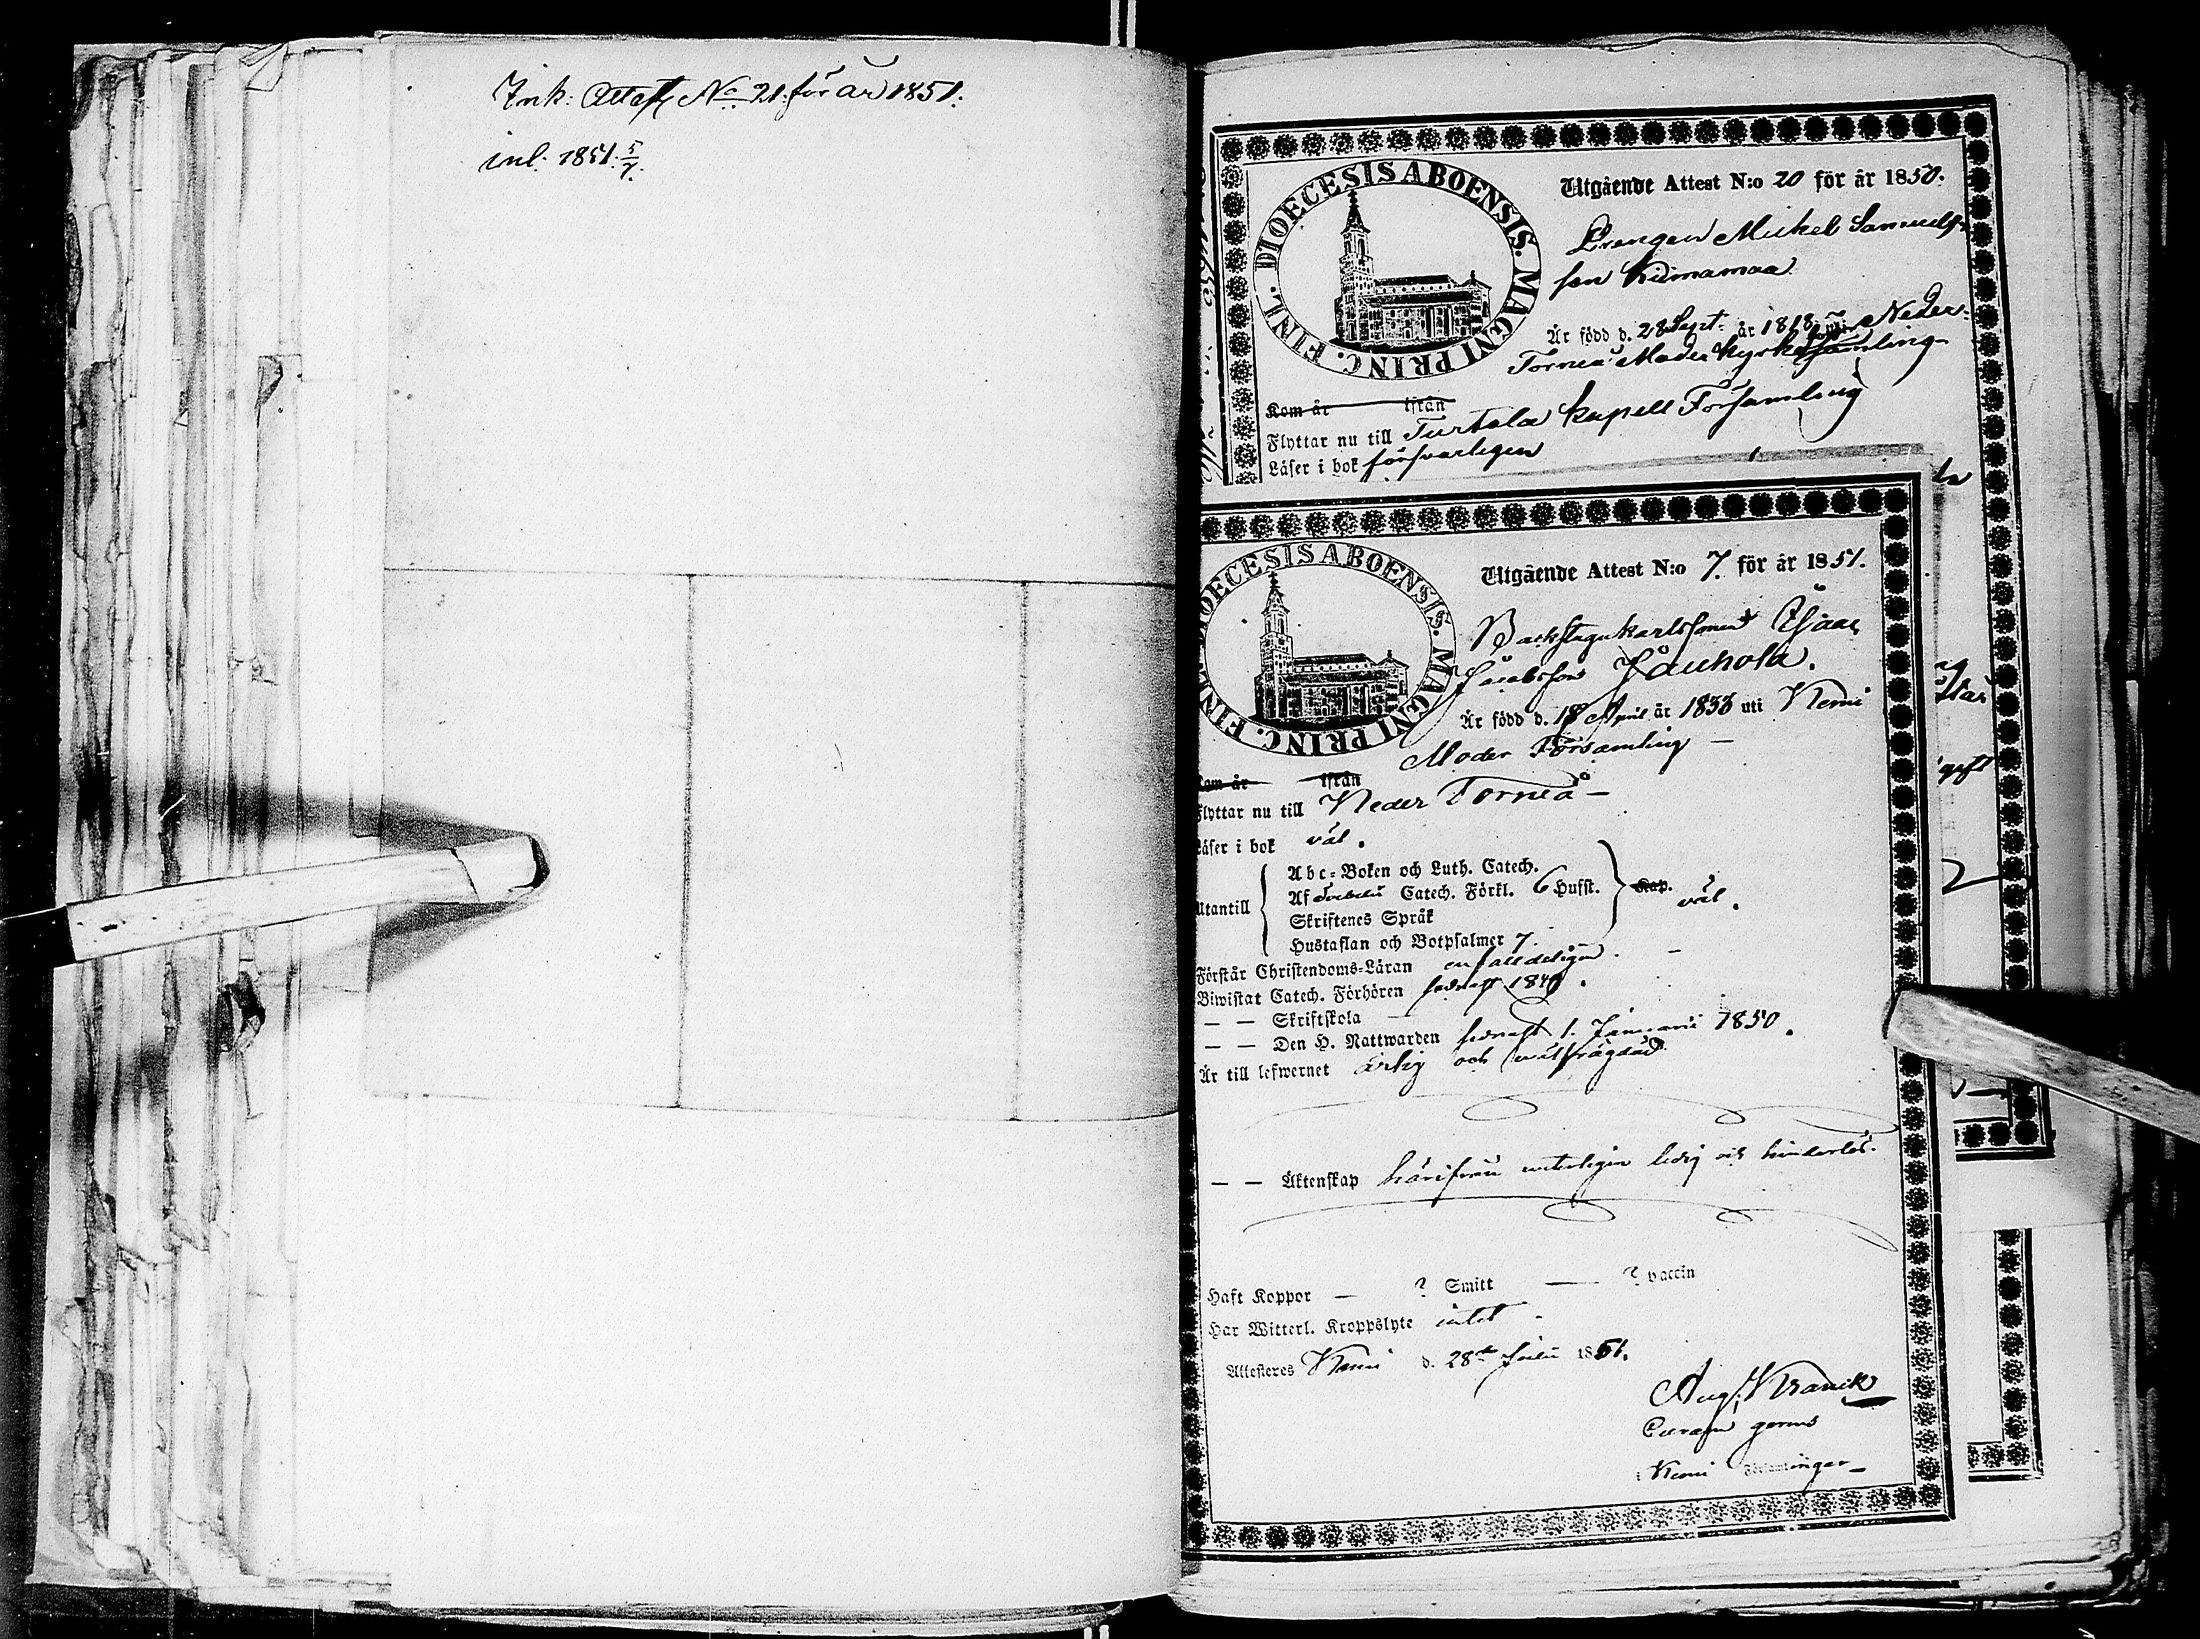 Ink: Attest No 21 för år 1851.
inl. 1851. 5/7.
DIOECESIS ABOENSIS. MAGNI PRINC. FINL.
Utgående Attest N:o 20 för år 1850.
Drengen Mickel Samuels
son Kiimamaa
Är född d. 28 Sept. år 1818 uti Neder-
Torneå Moderkyrkoförsamling
Kom år ifrån
Flyttar nu till Turtola kapell Församling
Läser i bok försvarligen
DIOECESIS ABOENSIS. MAGNI PRINC. FINL.
Utgående Attest N:o 7. för år 1851.
Backstugukarlssonen Isaac
Jacobsson Jauhola.
Är född d. 18 April år 1833 uti Kemi
Moder Församling —
Kom år ifrån
Flyttar nu till Neder Torneå —
Läser i bok väl.
Utantill
Abc-Boken och Luth. Catech.
Af Catech. Förkl. 6 Hufst. Kap. väl.
Skriftenes Språk
Hustaflan och Botpsalmer 7.
Förstår Christendoms-Läran enfaldeligen. —
Biwistat Catech. Förhören sednast 1849.
— — Skriftskola —
— — Den H. Nattwarden sednast 1. Januarii 1850.
Är till lefwernet ärlig och välfrägdad
— — Äktenskap härifrån veterligen ledig och hinderlös.
Haft Koppor — ? Smitt — ? vaccin
Har Witterl. Kroppslyte intet -
Attesteras Kemi d. 28de Juni 1851.
Aug. Kranck
Curam gerens
i Kemi Församlingar —